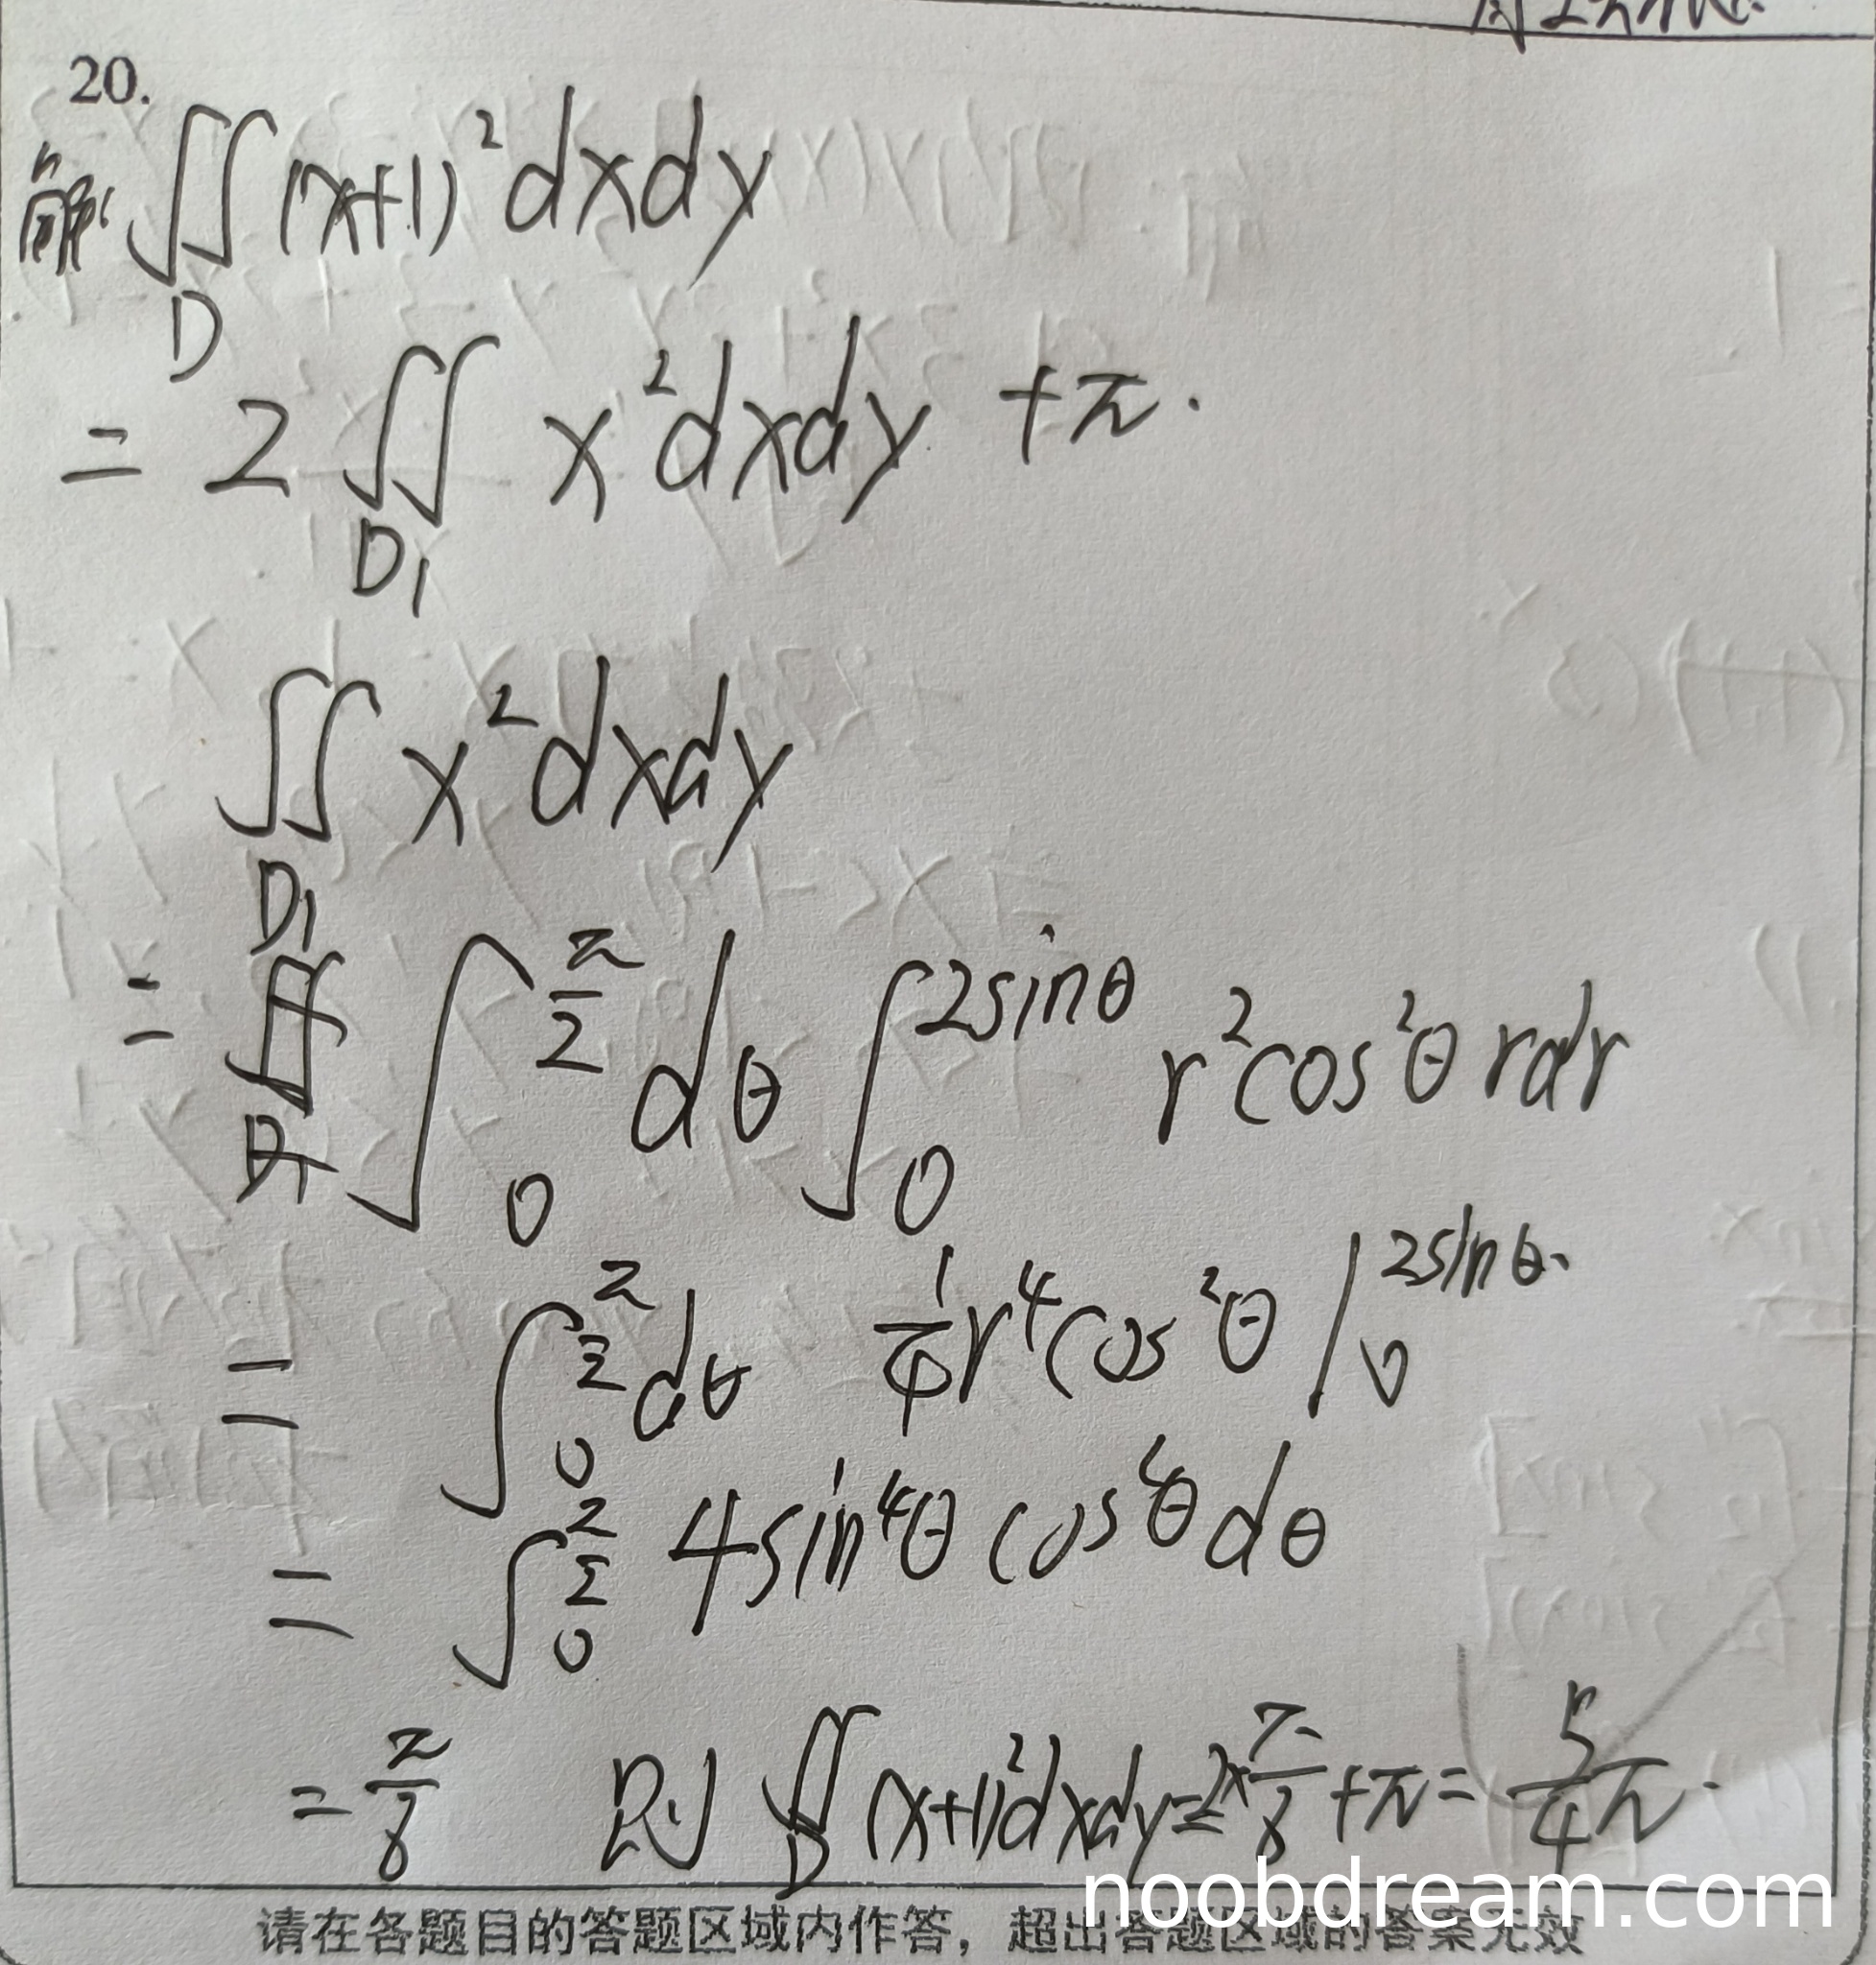 20.
解 ∬_D (x+1)² dxdy
= 2 ∬_{D₁} x² dxdy + π.
∬_{D₁} x² dxdy
= ∫₀^{π/2} dθ ∫₀^{2sinθ} r² cos²θ rdr
= ∫₀^{π/2} dθ 1/4 r⁴ cos²θ |₀^{2sinθ}
= ∫₀^{π/2} 4sin⁴θ cos²θ dθ
= π/8 则 ∬_D (x+1)² dxdy = 2×π/8 + π = 5/4 π.
noobdream.com
请在各题目的答题区域内作答，超出答题区域的答案无效